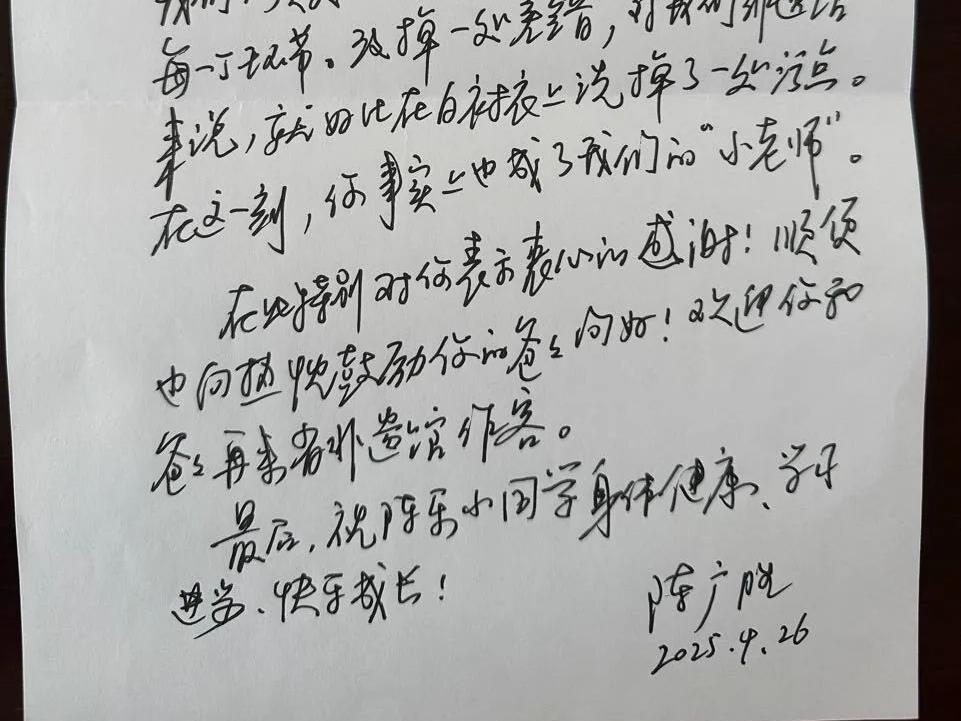 我们
每一个环节。改掉一处差错，对我们非遗馆
来说，就好比在白衬衣上洗掉了一处污点。
在这一刻，你事实上也成了我们的“小老师”。
在此特别对你表示衷心的感谢！顺便
也向热忱鼓励你的爸爸问好！欢迎你和
爸爸再来省非遗馆作客。
最后，祝陈乐小同学身体健康、学习
进步、快乐成长！
陈广胜
2025.4.26